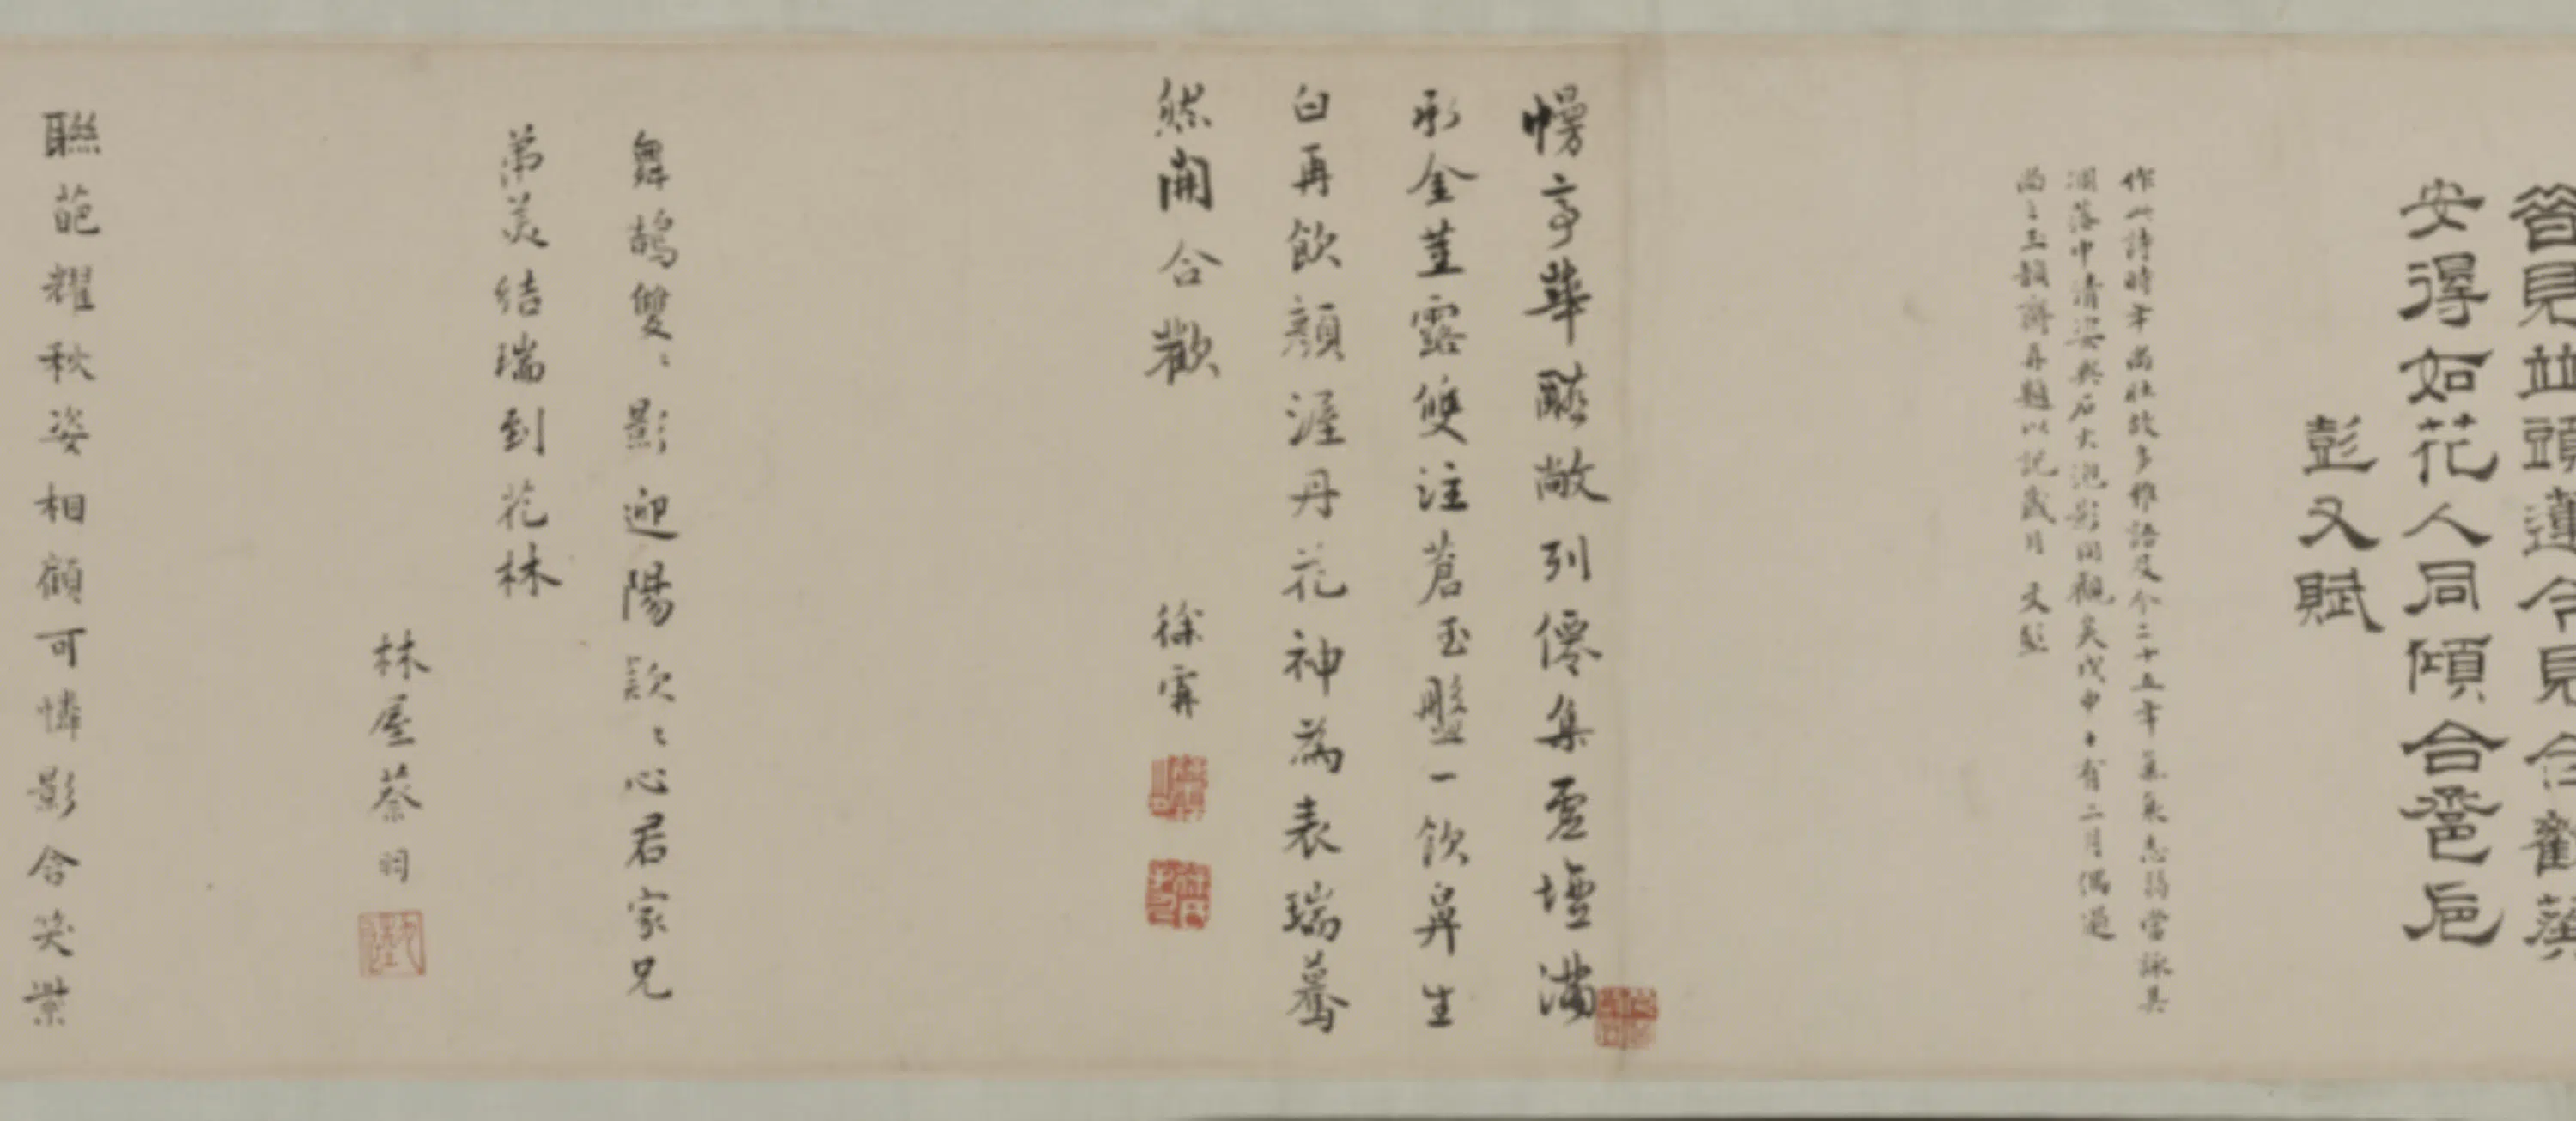 曾見並頭蓮今見合歡葵
安得如花人同傾合巹卮
彭又賦
作此詩時年尚壯故多雅語及今二十五年氣衰志弱當詠其
凋落中清姿與石大池影同觀矣戊申十有二月偶過
尚之玉韻齋再題以記歲月 文彭
幔亭華䣭敞列僊集雲壇滿
承金莖露雙注蒼玉盤一飲鼻生
白再飲顏渥丹花神為表瑞驀
然開合歡
徐霖
舞鵠雙〻影迎陽款〻心君家兄
弟美結瑞到花林
林屋蔡羽
聯葩耀秋姿相顧可憐影含笑業